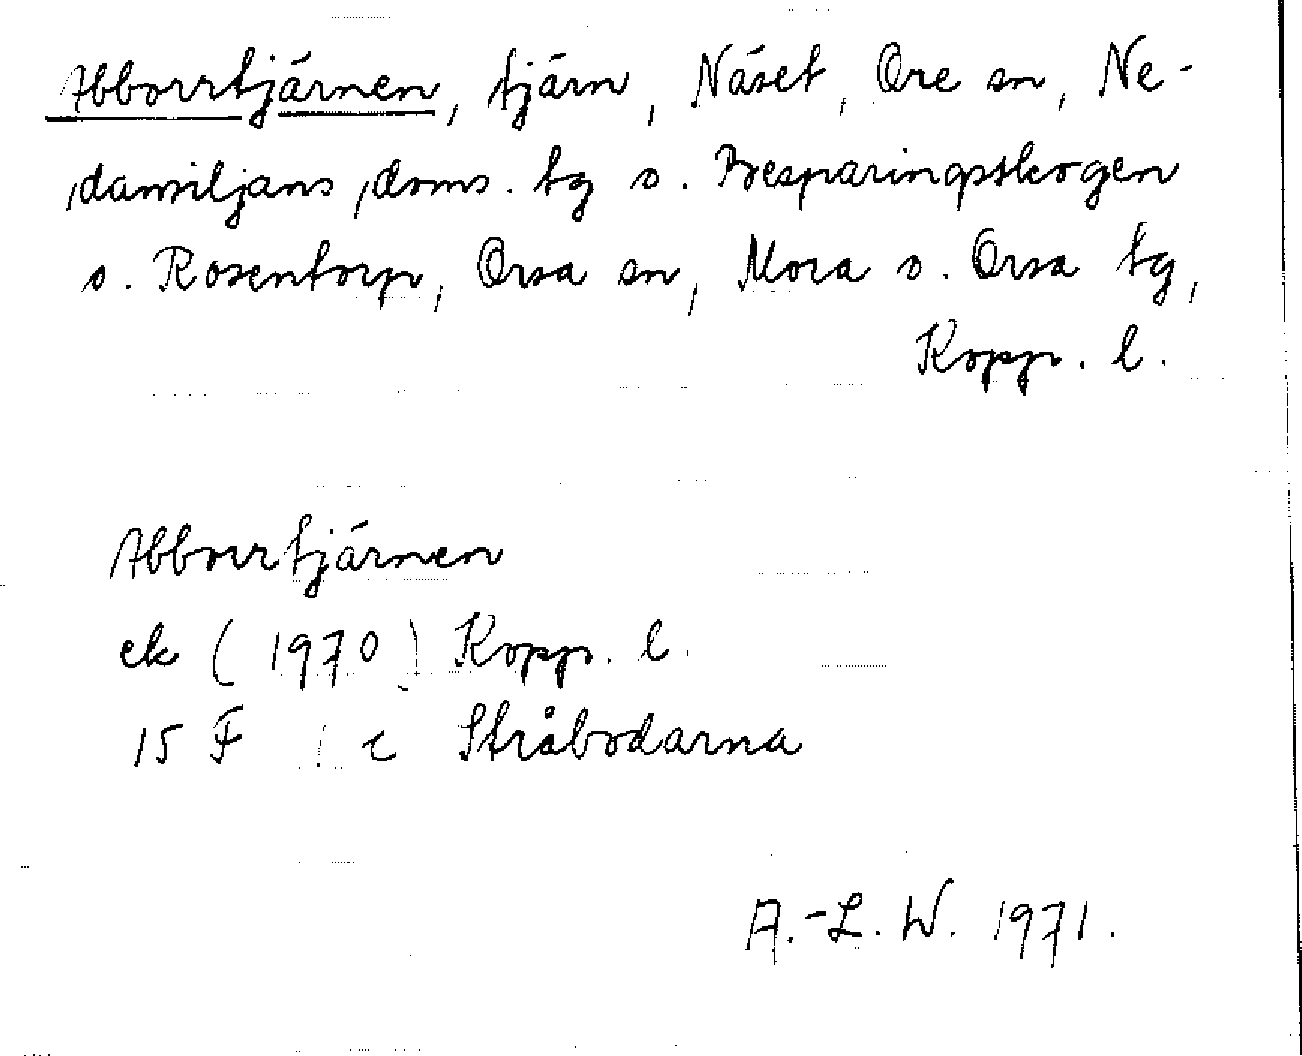 Abborrtjärnen, tjärn, Näset, Ore sn, Ne-
dansiljans doms. tg o. Besparingsskogen
o. Rosentorp, Orsa sn, Mora o. Orsa tg,
Kopp. l.
Abborrtjärnen
ek (1970) Kopp. l.
15 F ! c Stråbodarna
A.-L. W. 1971.